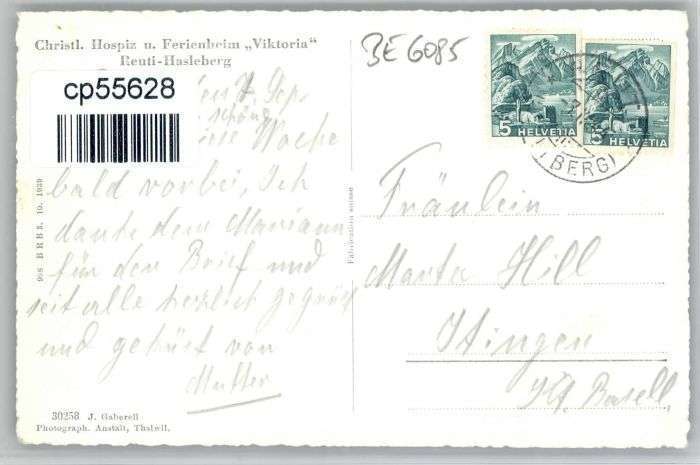 Christl. Hospiz u. Ferienheim „Viktoria"
Reuti-Hasleberg
BE 6085
cp55628
5 HELVETIA
5 HELVETIA
(BERG)
schöne
Woche
bald vorbei, Ich
danke dem Mariann
für den Brief und
seit alle herzlich gegrüst
und geküst von
Mutter
Fräulein
Marta Hill
Itingen
Kt. Basell.
906 BRB 10. 1939
Fabrication suisse
30258 J. Gaberell
Photograph. Anstalt, Thalwil.